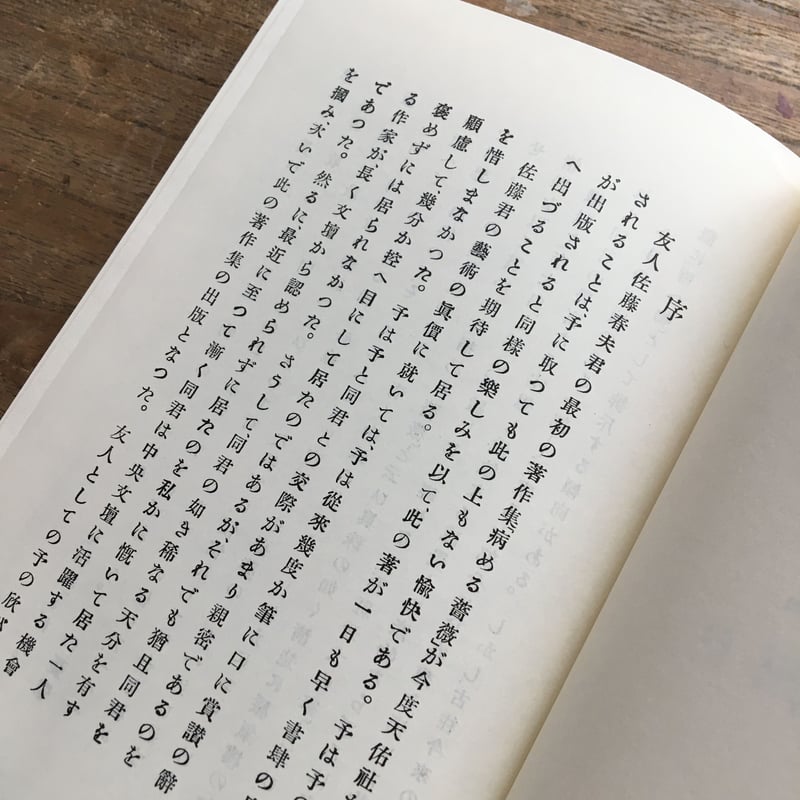 序
友人佐藤春夫君の最初の著作集「病める薔薇」が今度天佑社
されることは、予に取つても此の上もない愉快である。予は予の
が出版されると同様の樂しみを以て、此の著が一日も早く書肆の
へ出づることを期待して居る。
佐藤君の藝術の眞價に就いては、予は從來幾度か筆に口に賞讃の辭
を惜しまなかつた。予は予と同君との交際があまり親密であるのを
顧慮して幾分か控へ目にして居たのではあるがそれでも猶且同君を
褒めずには居られなかつた。さうして同君の如き稀なる天分を有す
る作家が、長く文壇から認められずに居たのを私かに慨いて居た一人
であつた。然るに、最近に至つて漸く同君は中央文壇に活躍する機會
を摑み、次いで此の著作集の出版となつた。友人としての予の欣